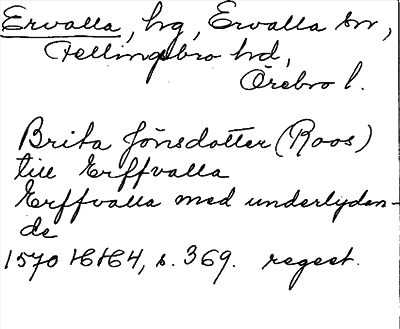 Ervalla, hg, Ervalla sn,
Fellingsbro hd,
Örebro l.
Brita Jönsdotter (Roos)
till Erffvalla
Erffvalla med underlydan-
de
1570 HH4, s. 369. regest.